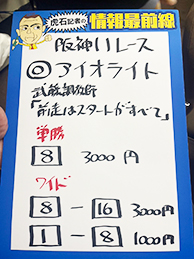 虎石記者の
情報最前線
阪神11レース
◎アイオライト
武藤調教師
「前走はスタートがすべて」
単勝
8 3000円
ワイド
8 - 16 3000円
1 - 8 1000円